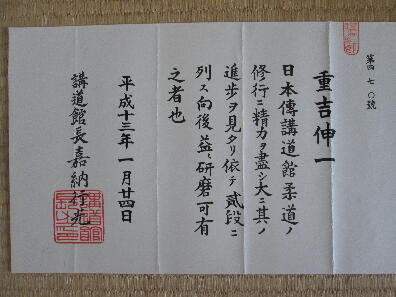 第四七〇號
重吉伸一
日本傳講道館柔道ノ
修行ニ精力ヲ盡シ大ニ其ノ
進歩ヲ見タリ依テ貳段ニ
列ス向後益〻研磨可有
之者也
平成十三年一月廿四日
講道館長嘉納行光